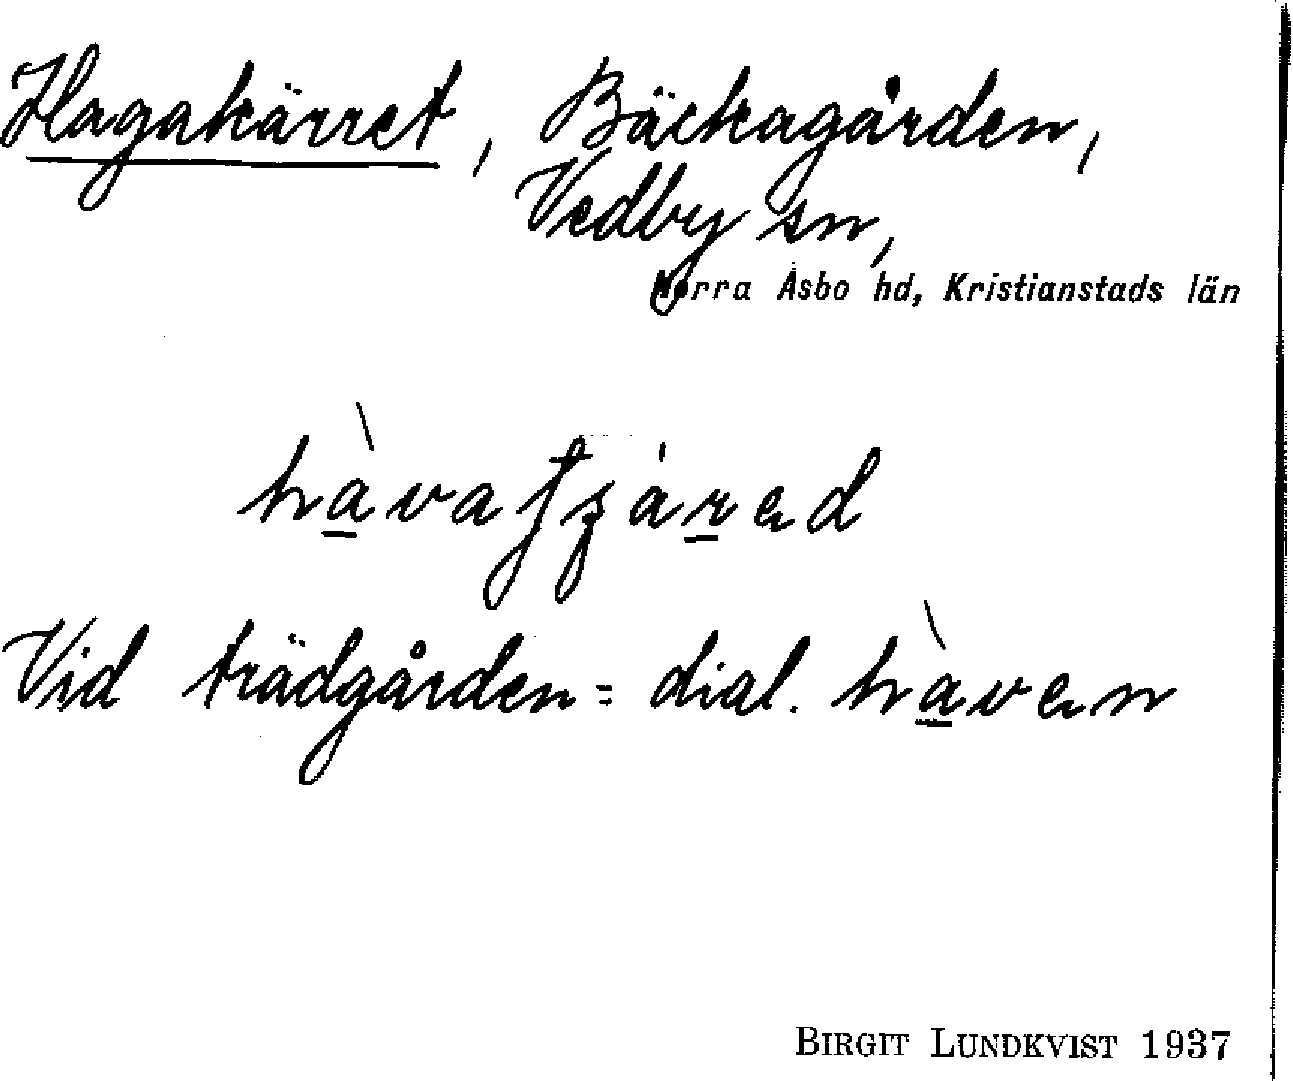 Hagakärret, Bäckagården,
Vedby sn,
Norra Åsbo hd, Kristianstads län
hàvatʃáred
Vid trädgården = dial. hàven
BIRGIT LUNDKVIST 1937